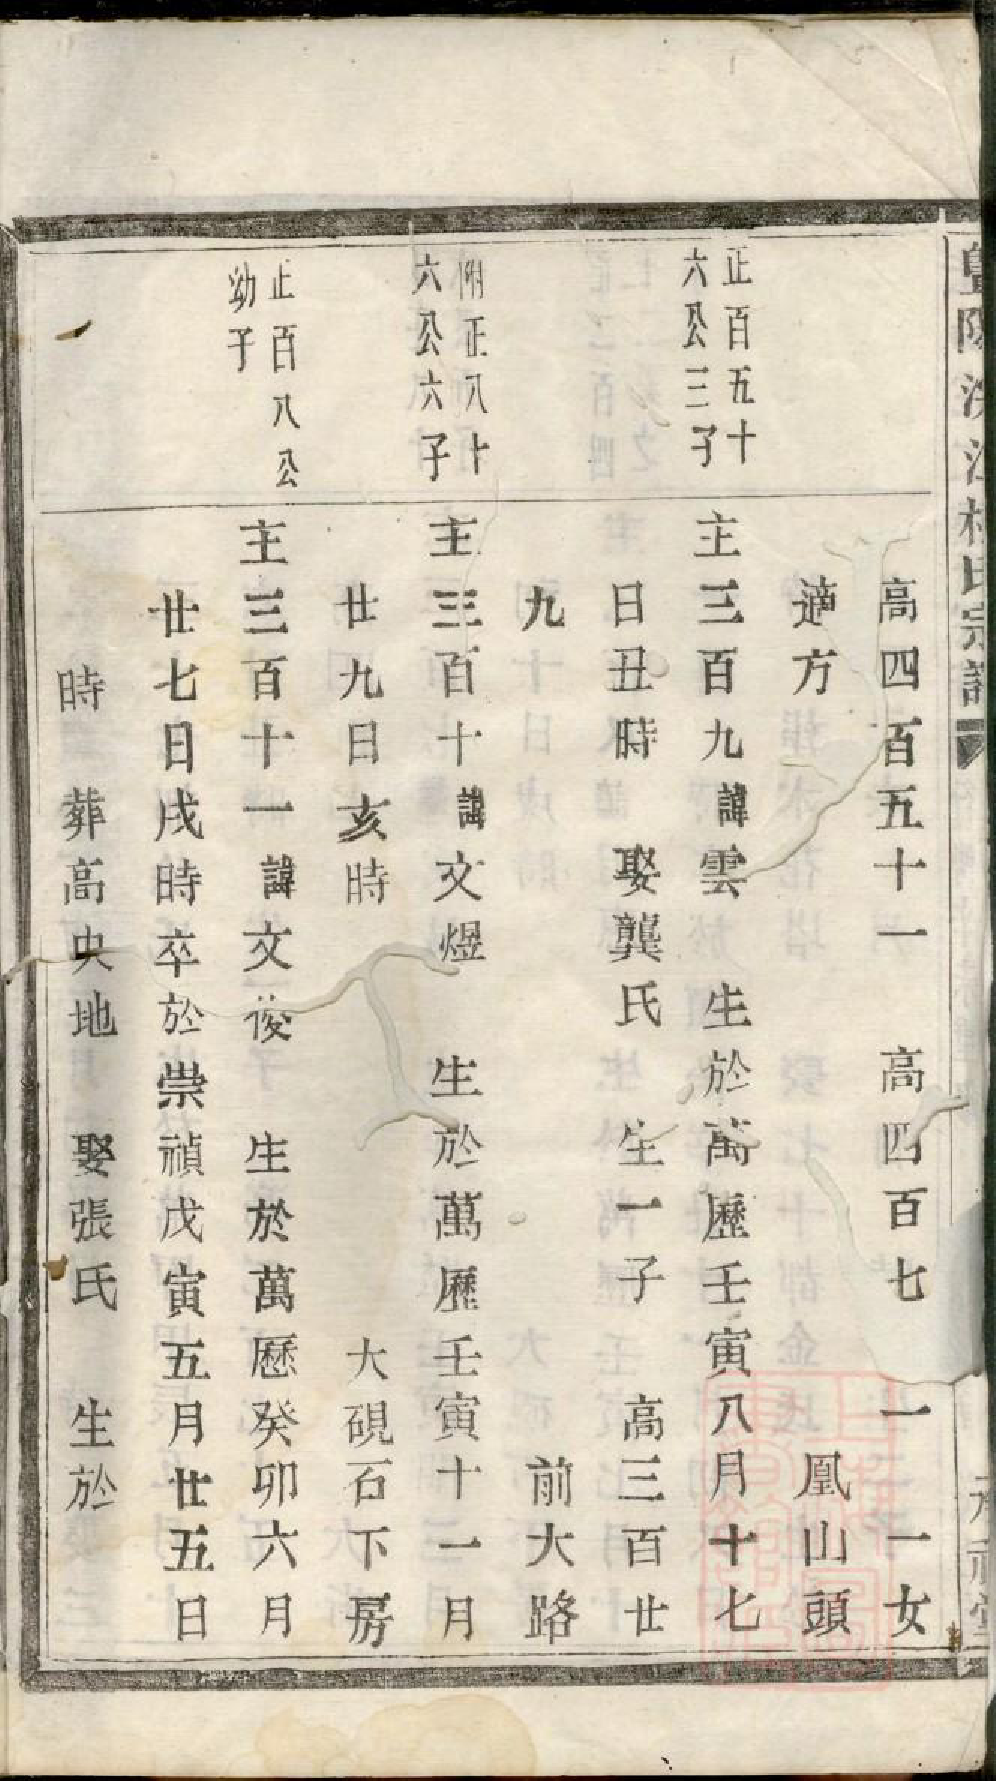 高四百五十一　高四百七　一一女
適方　鳳山頭
正百五十
六公三子
主三百九諱雲　生於萬歷壬寅八月十七
日丑時　娶龔氏　生一子　高三百廿
九　前大路
正八十
六公六子
主三百十諱文煜　生於萬歷壬寅十一月
廿九日亥時　大硯石下房
正百八公
幼子
主三百十一諱文俊　生於萬歷癸卯六月
廿七日戌時卒於崇禎戊寅五月廿五日
時　葬高央地　娶張氏　生於